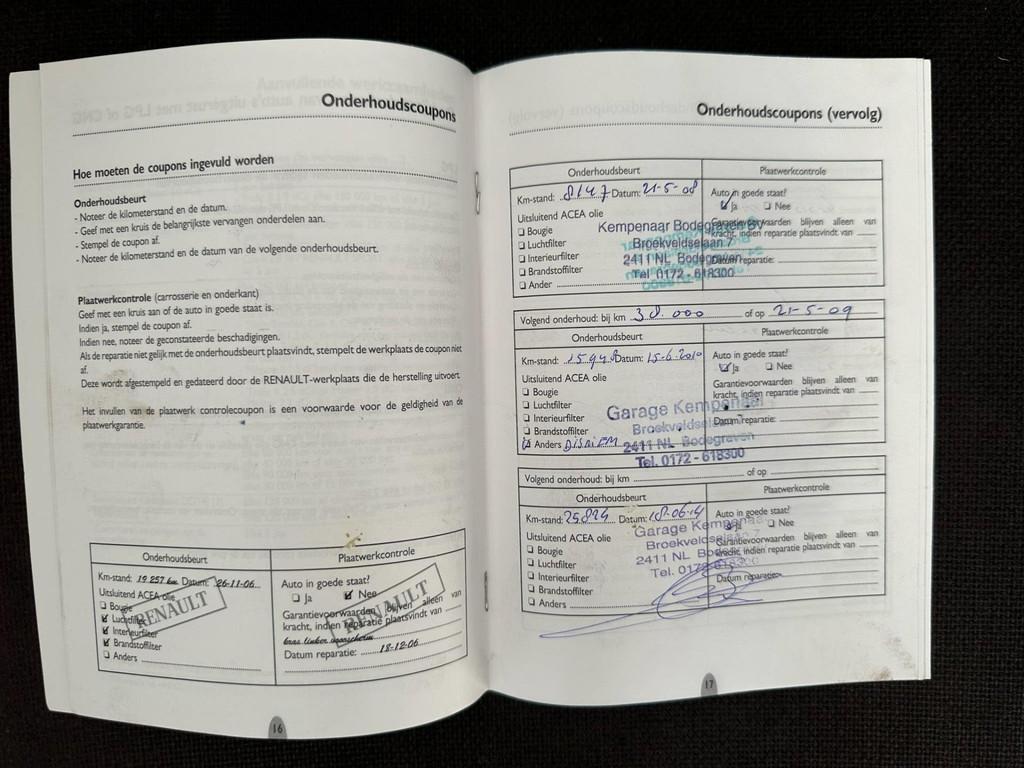 Onderhoudscoupons
Hoe moeten de coupons ingevuld worden
Onderhoudsbeurt
- Noteer de kilometerstand en de datum.
- Geef met een kruis de belangrijkste vervangen onderdelen aan.
- Stempel de coupon af.
- Noteer de kilometerstand en de datum van de volgende onderhoudsbeurt.
Plaatwerkcontrole (carrosserie en onderkant)
Geef met een kruis aan of de auto in goede staat is.
Indien ja, stempel de coupon af.
Indien nee, noteer de geconstateerde beschadigingen.
Als de reparatie niet gelijk met de onderhoudsbeurt plaatsvindt, stempelt de werkplaats de coupon niet
af.
Deze wordt afgestempeld en gedateerd door de RENAULT-werkplaats die de herstelling uitvoert
Het invullen van de plaatwerk controlecoupon is een voorwaarde voor de geldigheid van de
plaatwerkgarantie.
Onderhoudsbeurt
Km-stand: 19.257 km Datum: 26-11-06
Uitsluitend ACEA olie
Bougie
Luchtfilter
Interieurfilter
Brandstoffilter
Anders
RENAULT
Plaatwerkcontrole
Auto in goede staat?
Ja Nee
Garantievoorwaarden blijven alleen van
kracht, indien reparatie plaatsvindt van
linker voorscherm
Datum reparatie: 18-12-06
RENAULT
16
Onderhoudscoupons (vervolg)
Onderhoudsbeurt
Km-stand: 8147 Datum: 21-5-08
Uitsluitend ACEA olie
Bougie
Luchtfilter
Interieurfilter
Brandstoffilter
Ander
Kempenaar Bodegraven BV
Broekveldselaan 7
2411 NL Bodegraven
Tel. 0172 - 618300
Plaatwerkcontrole
Auto in goede staat?
Ja Nee
Garantievoorwaarden blijven alleen van
kracht, indien reparatie plaatsvindt van
Datum reparatie:
Volgend onderhoud: bij km 38.000 of op 21-5-09
Onderhoudsbeurt
Km-stand: 15948 Datum: 15-6-2010
Uitsluitend ACEA olie
Bougie
Luchtfilter
Interieurfilter
Brandstoffilter
Anders
Garage Kempenaar
Broekveldselaan
2411 NL Bodegraven
Tel. 0172 - 618300
Plaatwerkcontrole
Auto in goede staat?
Ja Nee
Garantievoorwaarden blijven alleen van
kracht, indien reparatie plaatsvindt van
Datum reparatie:
Volgend onderhoud: bij km of op
Onderhoudsbeurt
Km-stand: Datum: 18-06-14
Uitsluitend ACEA olie
Bougie
Luchtfilter
Interieurfilter
Brandstoffilter
Anders
Garage Kempenaar
Broekveldselaan 7
2411 NL Bodegraven
Tel. 0172 - 618300
Plaatwerkcontrole
Auto in goede staat?
Ja Nee
Garantievoorwaarden blijven alleen van
kracht, indien reparatie plaatsvindt van
Datum reparatie:
17